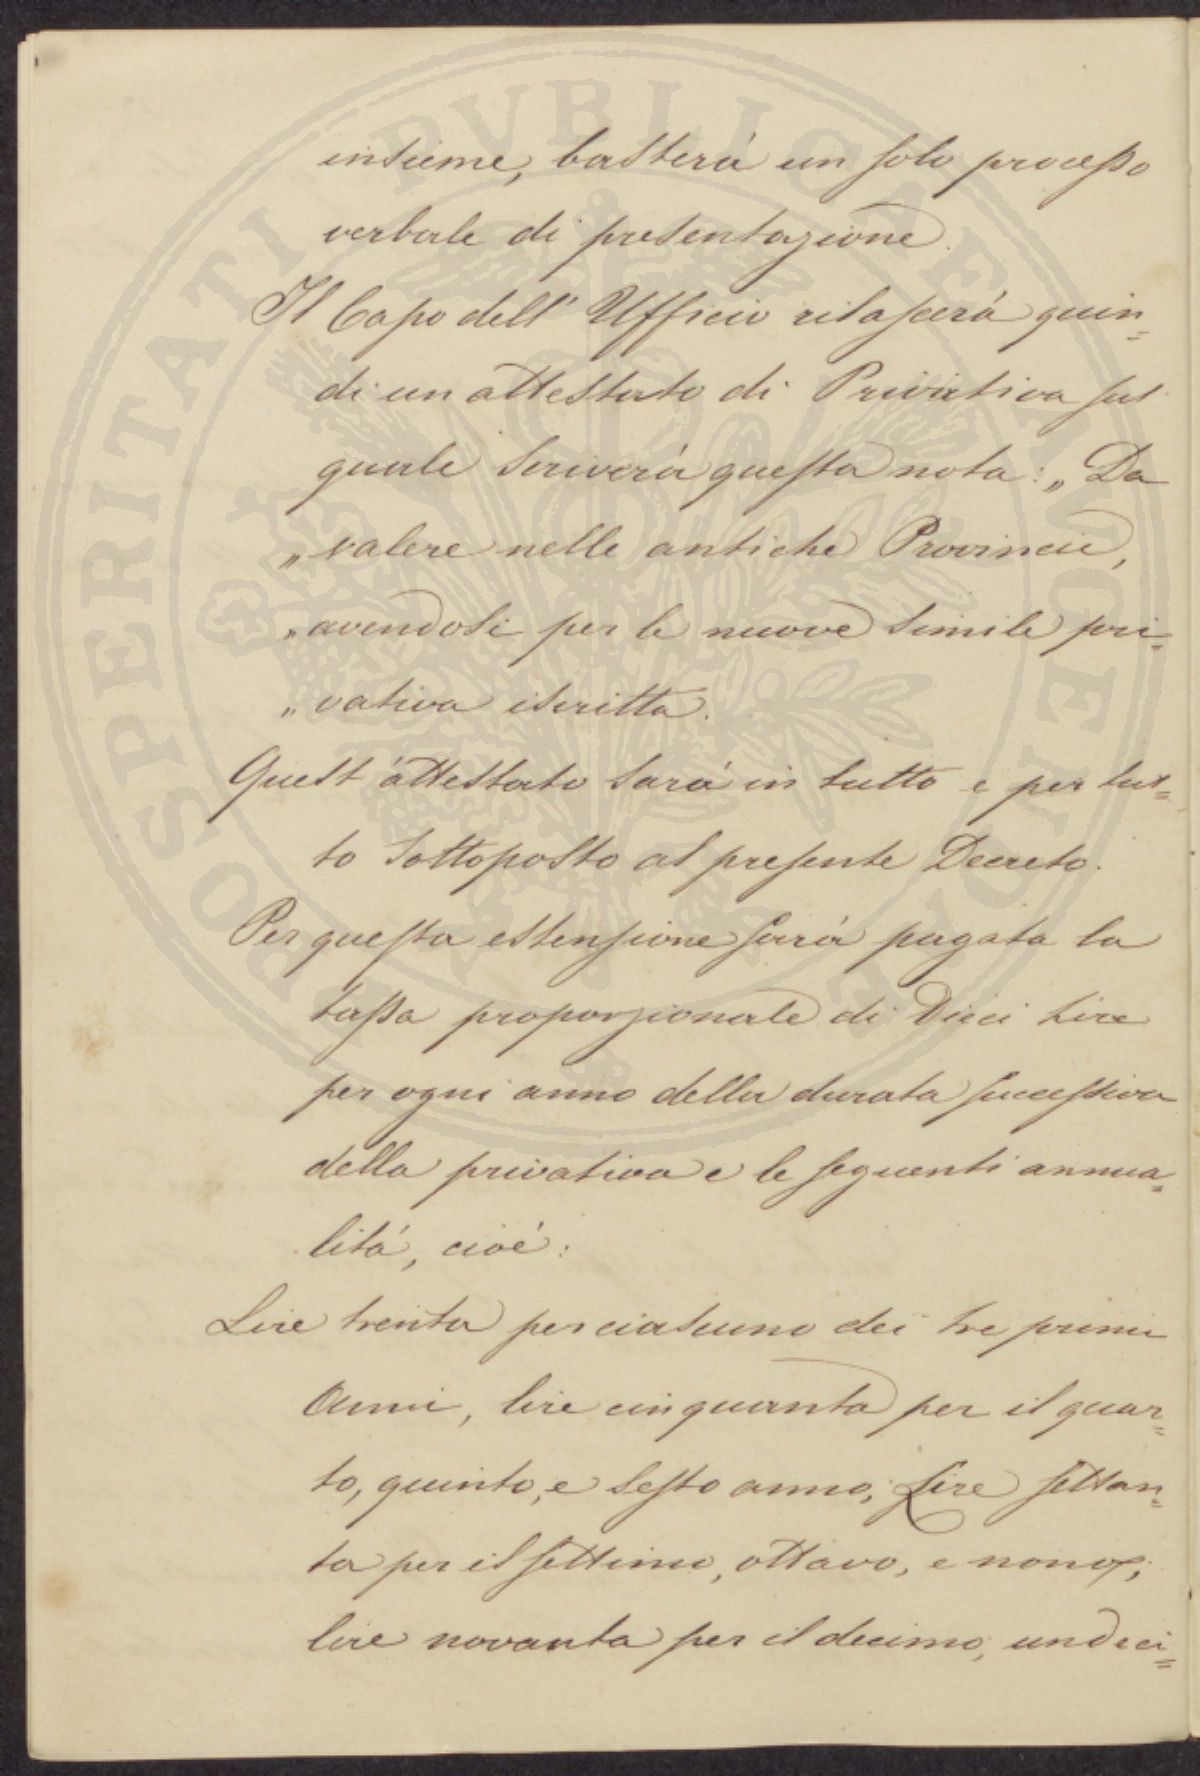 insieme, basterà un solo processo
verbale di presentazione.
Il Capo dell'Ufficio rilascerà quin=
di un attestato di Privativa sul
quale scriverà questa nota: „Da
„valere nelle antiche Provincie,
„avendosi per le nuove simile pri=
„vativa iscritta.
Quest'attestato sarà in tutto e per tut=
to sottoposto al presente Decreto.
Per questa estensione sarà pagata la
tassa proporzionale di Dieci Lire
per ogni anno della durata successiva
della privativa e le seguenti annua=
lità, cioè:
Lire trenta per ciascuno dei tre primi
Anni, lire cinquanta per il quar=
to, quinto, e sesto anno, Lire settan=
ta per il settimo, ottavo, e nono;
lire novanta per il decimo, undeci=
PROSPERITATI PVBLICAE AVGENDAE